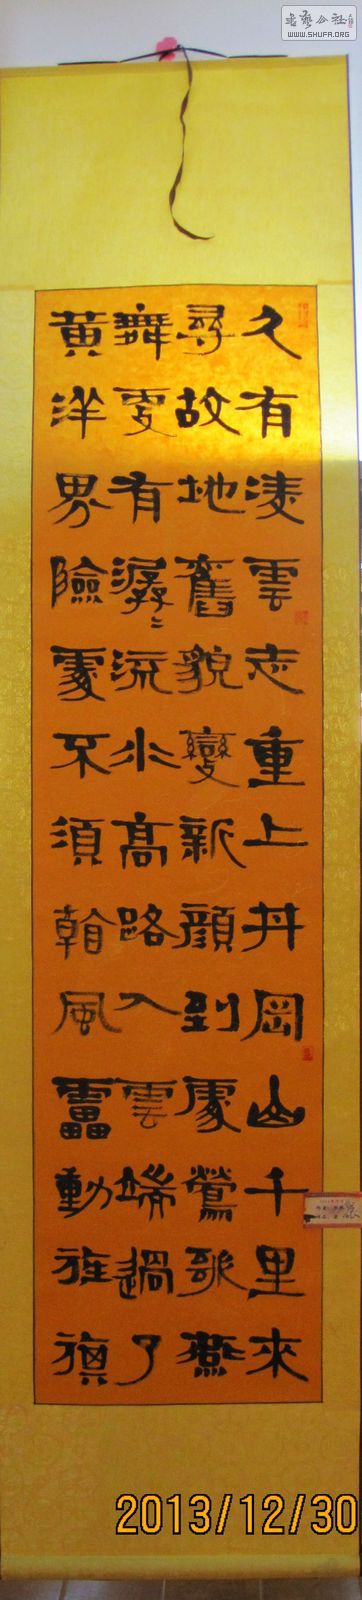 書藝公社
WWW.SHUFA.ORG
久有淩雲志重上井岡山千里來
尋故地舊貌變新顏到處鶯歌燕
舞更有潺々流水高路入雲端過了
黃洋界險處不須看風雷動旌旗
2013/12/30